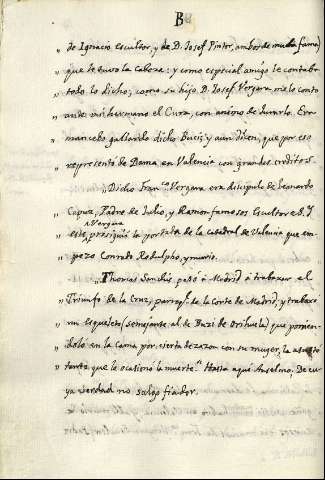 B
„ de Ignacio escultor, y de D. Josef Pintor, ambos de mucha fama)
„ que te tuvo la cabeza: y como especial amigo le contaba
„ todo lo dicho; como su hijo D. Josef Vergara me lo conto
„ ante mi hermano el Cura, con animo de Jurarlo. Era
„ mancebo gallardo dicho Bucis; y aun dicen, que por eso
„ representó de Dama en Valencia con grandes creditos.
„ Dicho Fran.co Vergara era discipulo de Leonardo
„ Capuz, Padre de Julio, y Ramon famosos Escultores. Y
Vergara
„ este, prosiguió la portada de la Catedral de Valencia que em-
„ pezo Conrado Rodulpho, y murio.
„ Thomas Sanchis pasó á Madrid á trabajar el
„ Triunfo de la Cruz, parroq.a de la Corte de Madrid; y trabaxó
„ un esqueleto (semejante al de Buzi de Orihuela) que ponien-
„ dolo en la cama por cierta desazon con su mujer, la asustó
„ tanto que le ocasionó la muerte. Hasta aqui Anselmo. De cu-
ya verdad no salgo fiador.